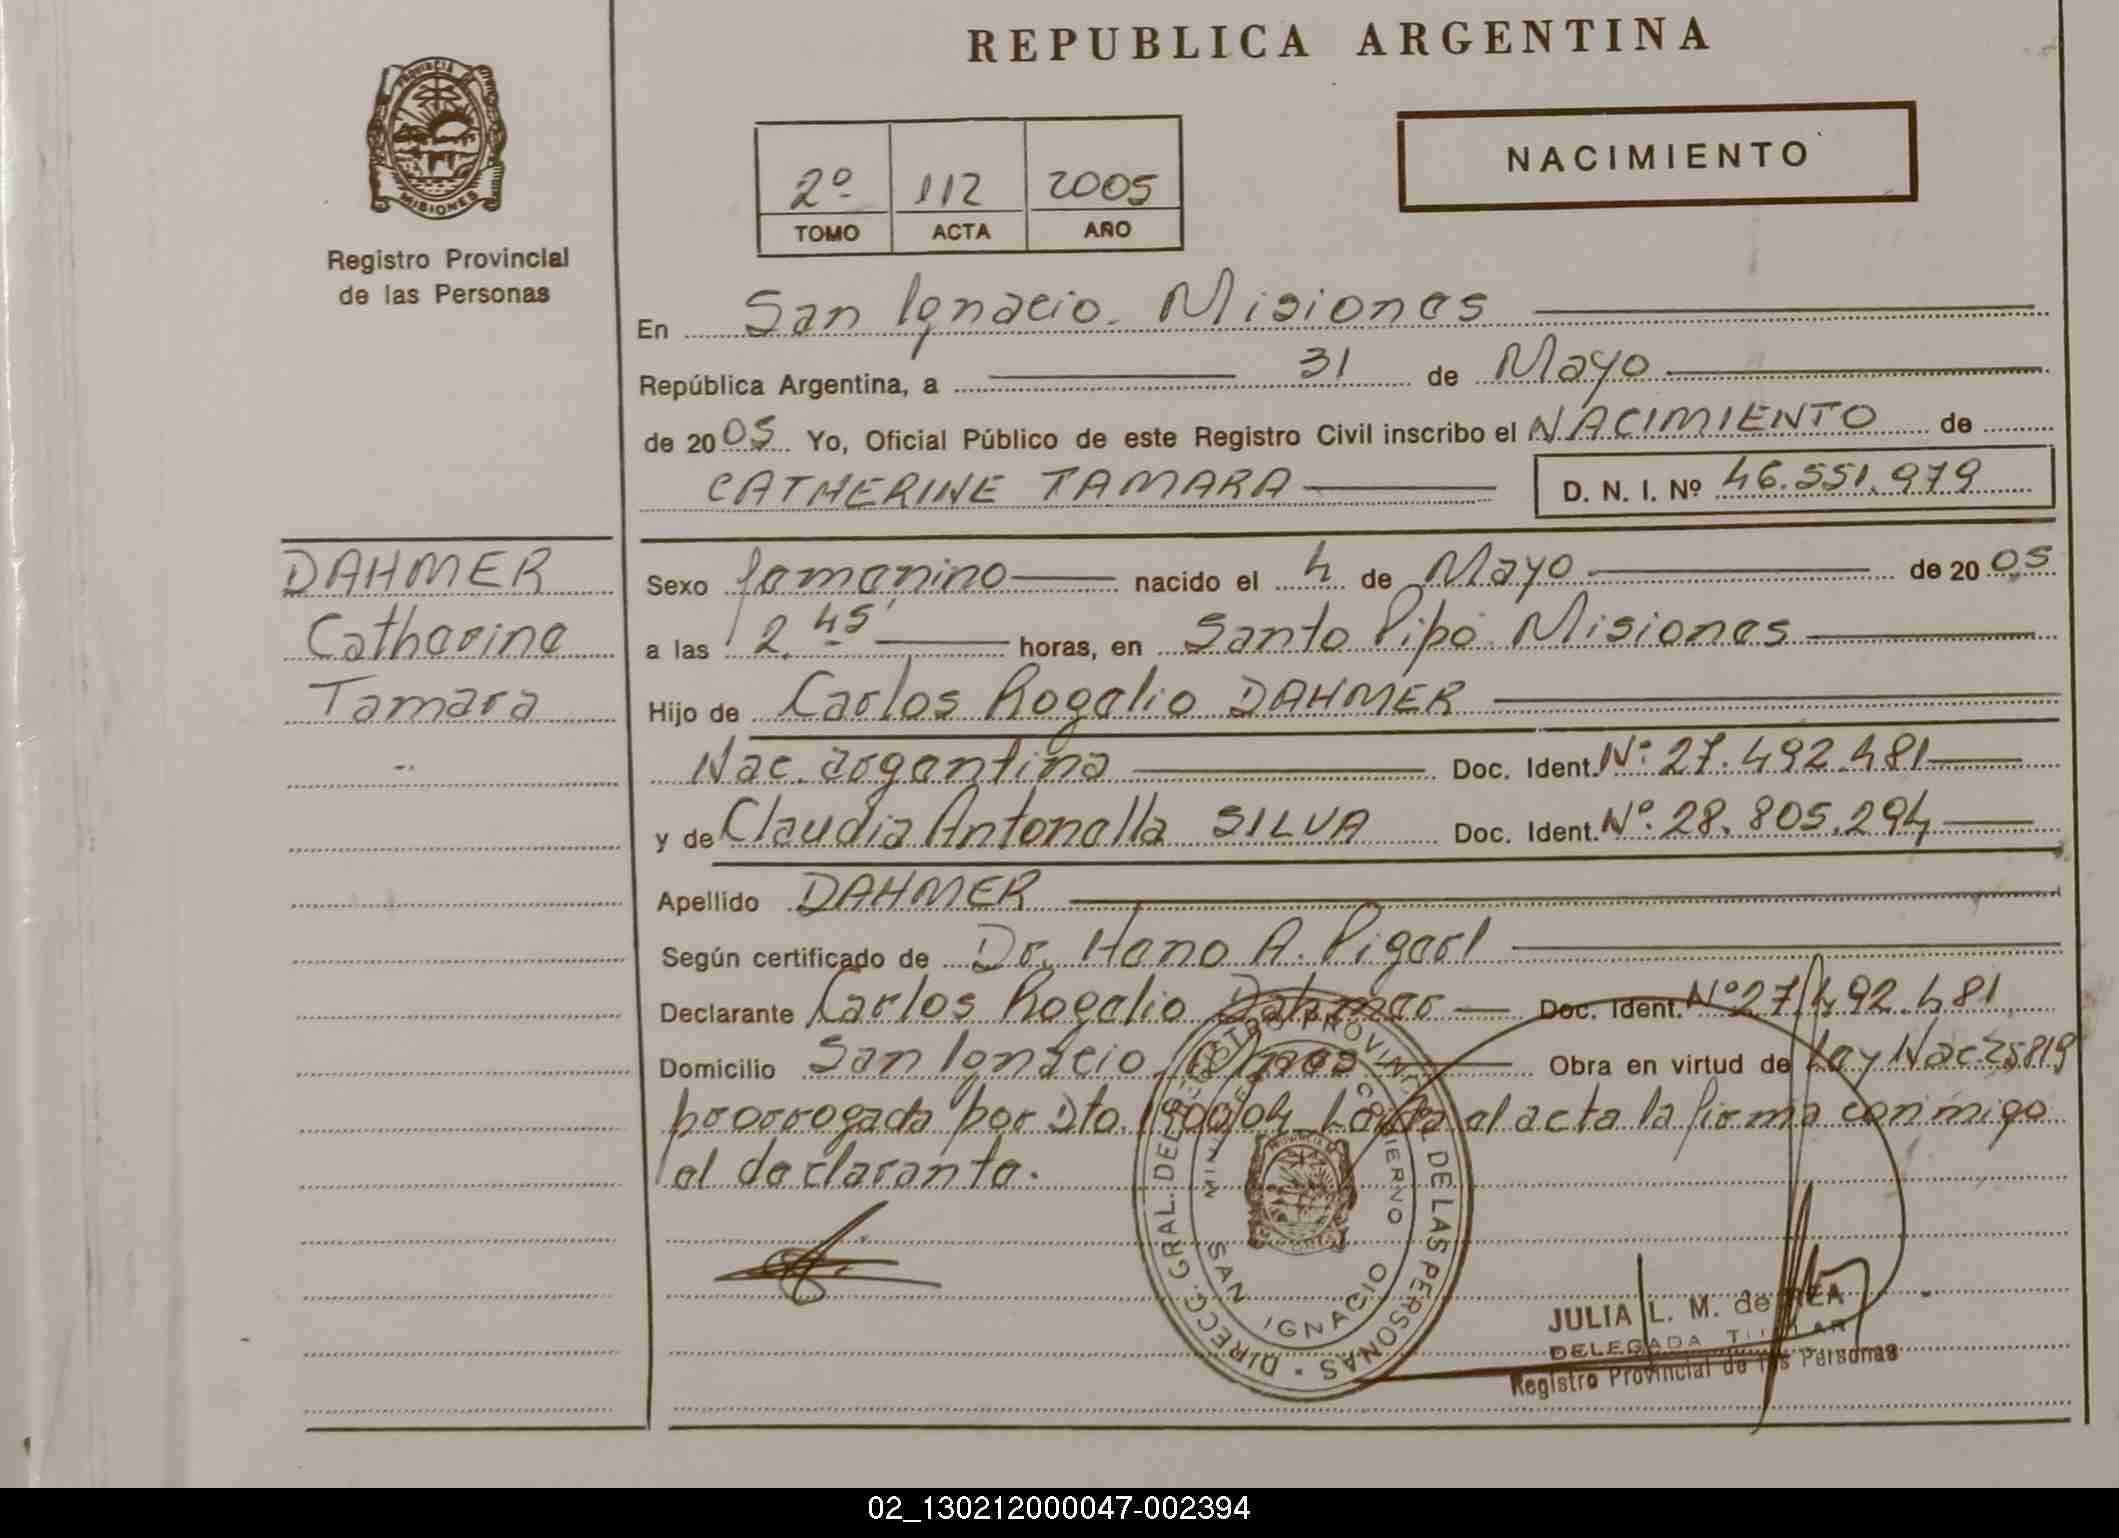 REPUBLICA ARGENTINA
PROVINCIA DE
MISIONES
Registro Provincial
de las Personas
2º 112 2005
TOMO ACTA AÑO
NACIMIENTO
En San Ignacio. Misiones
República Argentina, a 31 de Mayo
de 2005 Yo, Oficial Público de este Registro Civil inscribo el NACIMIENTO de
CATHERINE TAMARA D. N. I. Nº 46.551.979
DAHMER
Catherine
Tamara
Sexo femenino nacido el 4 de Mayo de 2005
a las 2.45' horas, en Santo Pipó. Misiones
Hijo de Carlos Rogelio DAHMER
Nac. argentina Doc. Ident. Nº 27.492.481
y de Claudia Antonella SILVA Doc. Ident. Nº 28.805.294
Apellido DAHMER
Según certificado de Dr. Hano A. Pigerl
Declarante Carlos Rogelio Dahmer Doc. Ident. Nº 27.492.481
Domicilio San Ignacio Obra en virtud de Ley Nac 25819
prorrogada por Dto. 1900/04 Leída el acta la firma conmigo
el declarante.
DIRECC. GRAL. DEL REGISTRO PROVINCIAL DE LAS PERSONAS
GOBIERNO
SAN IGNACIO
JULIA L. M. de REA
DELEGADA TITULAR
Registro Provincial de las Personas
02_130212000047-002394